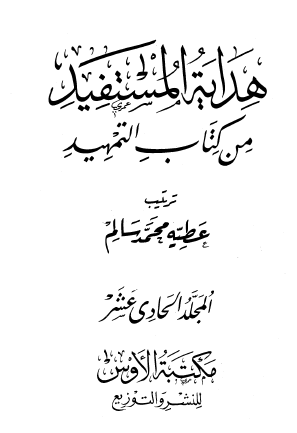 هِدَايَةُ الْمُسْتَفِيدِ
مِنْ كِتَابِ التَّمْهِيدِ
ترتيب
عطيه محمد سالم
المجلد الحادى عشر
مكتبة الأوس
للنشر والتوزيع